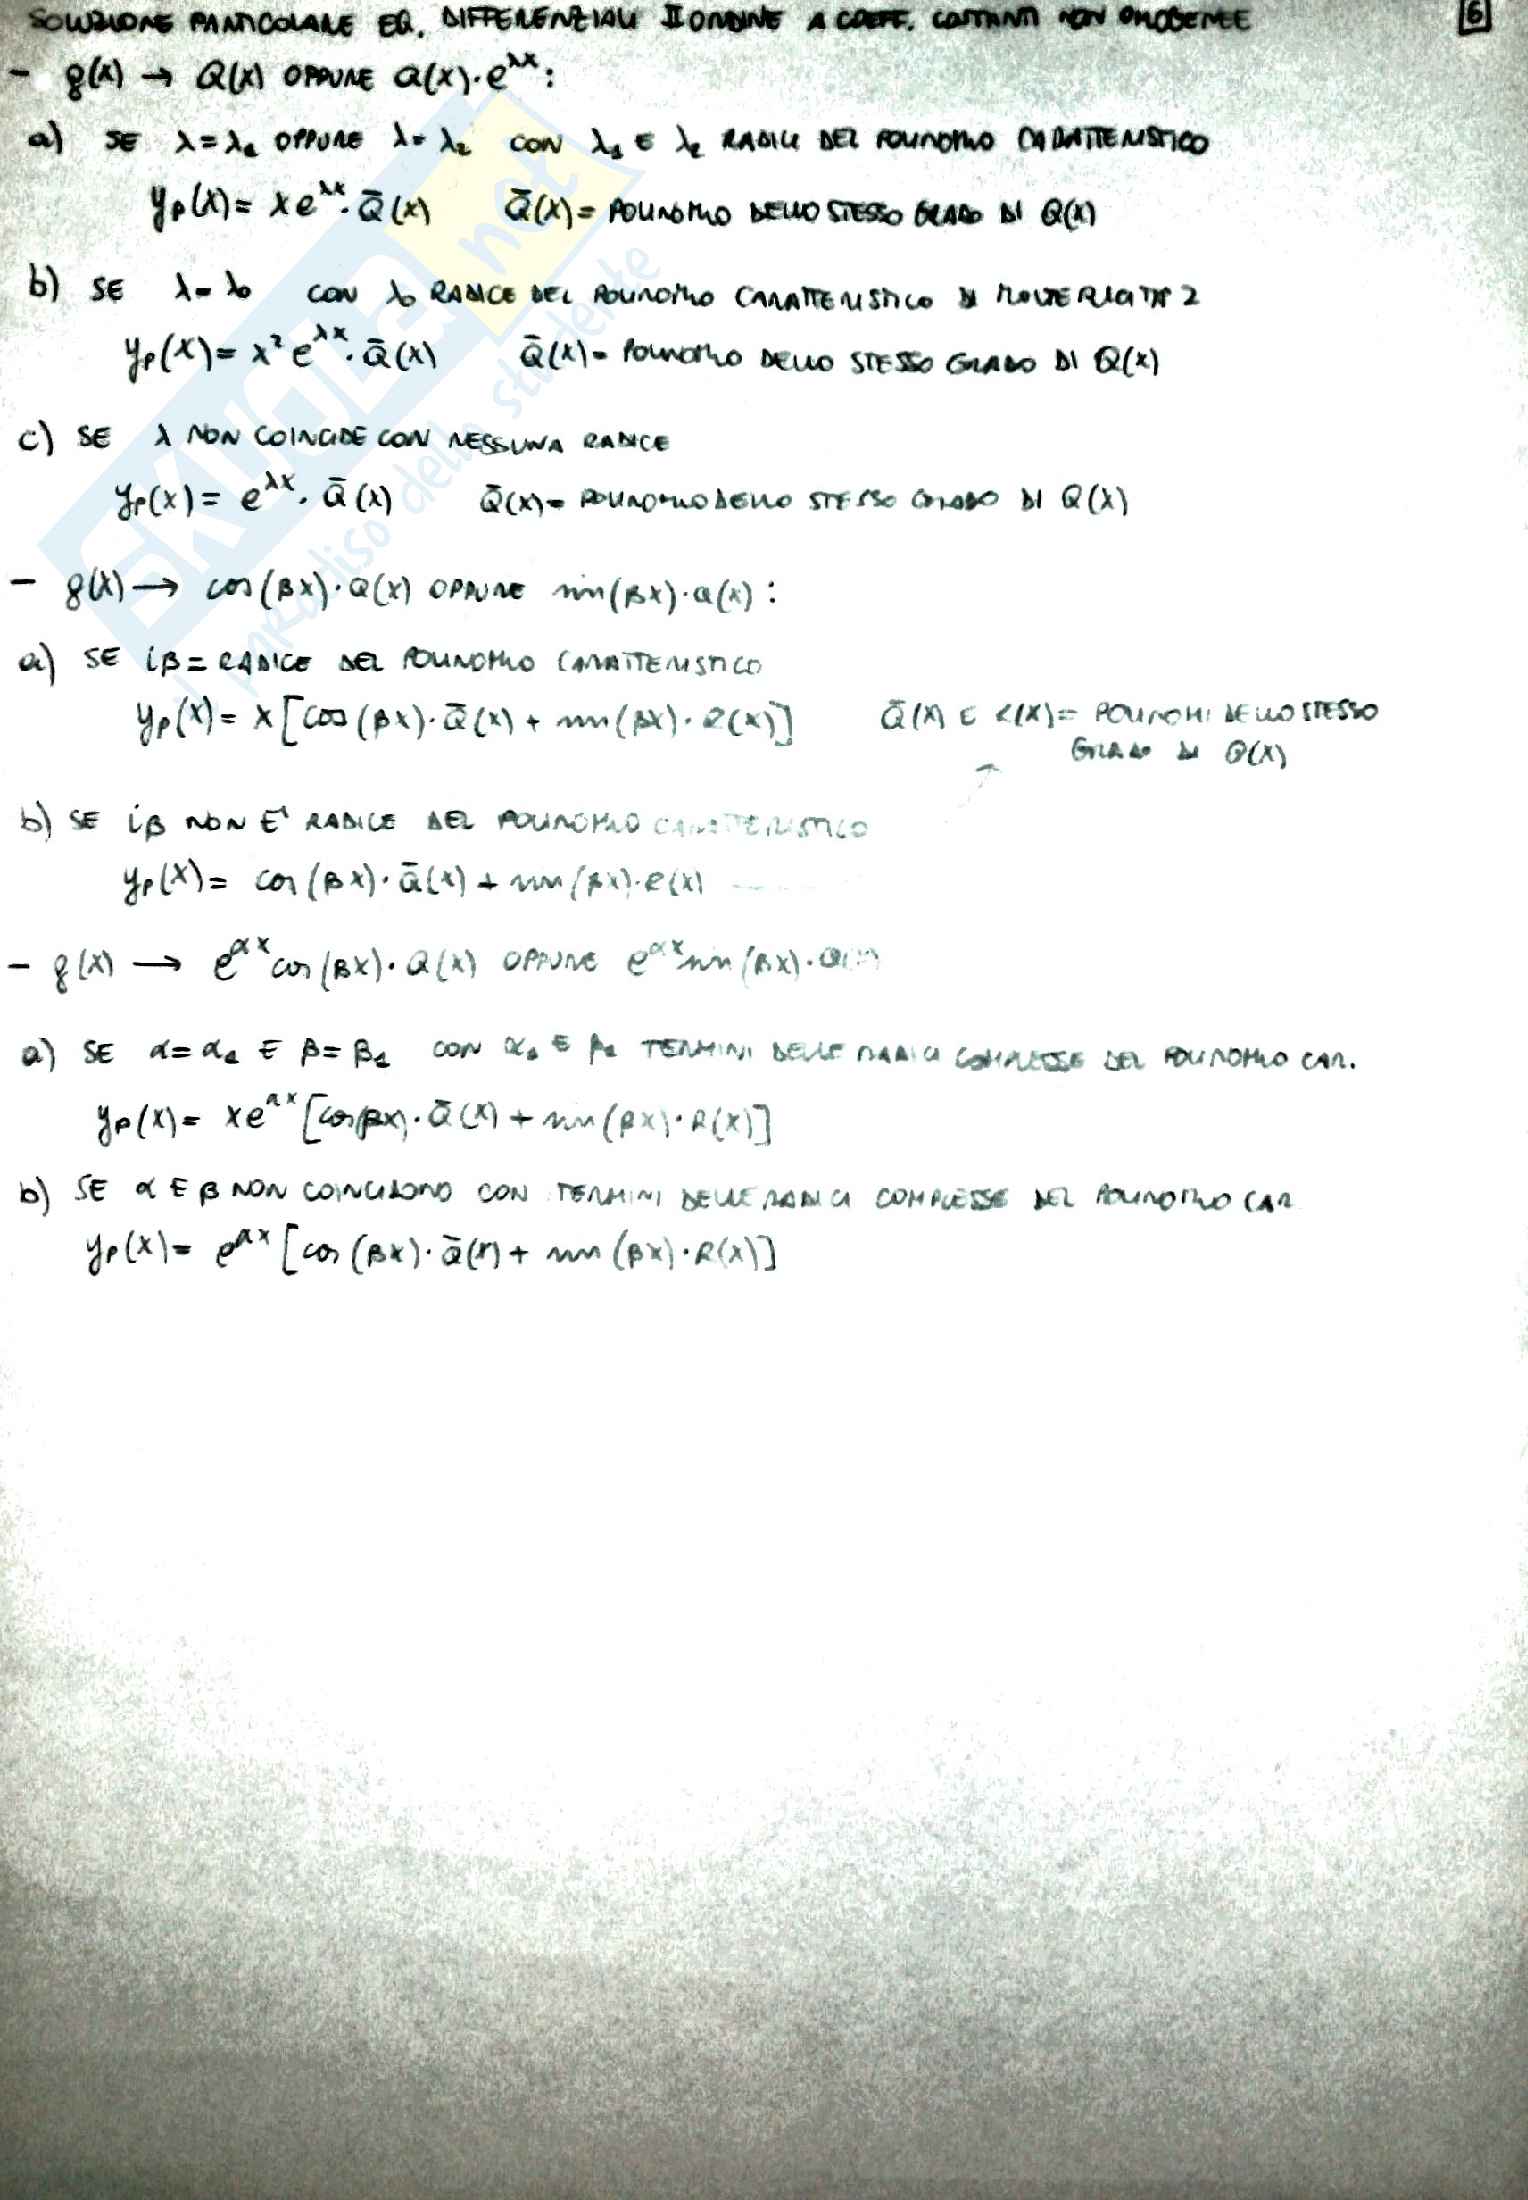 SOLUZIONE PARTICOLARE EQ. DIFFERENZIALI II ORDINE A COEFF. COSTANTI NON OMOGENEE
6
- g(x) → Q(x) OPPURE Q(x)·e^λx :
a) SE λ=λ1 OPPURE λ=λ2 CON λ1 E λ2 RADICI DEL POLINOMIO CARATTERISTICO
yp(x) = x e^λx · Q̄(x) Q̄(x) = POLINOMIO DELLO STESSO GRADO DI Q(x)
b) SE λ=λ0 CON λ0 RADICE DEL POLINOMIO CARATTERISTICO DI MOLTEPLICITA' 2
yp(x) = x² e^λx · Q̄(x) Q̄(x) = POLINOMIO DELLO STESSO GRADO DI Q(x)
c) SE λ NON COINCIDE CON NESSUNA RADICE
yp(x) = e^λx · Q̄(x) Q̄(x) = POLINOMIO DELLO STESSO GRADO DI Q(x)
- g(x) → cos(βx)·Q(x) OPPURE sin(βx)·Q(x) :
a) SE iβ = RADICE DEL POLINOMIO CARATTERISTICO
yp(x) = x [cos(βx)·Q̄(x) + sin(βx)·R(x)] Q̄(x) E R(x) = POLINOMI DELLO STESSO
GRADO DI Q(x)
b) SE iβ NON E' RADICE DEL POLINOMIO CARATTERISTICO
yp(x) = cos(βx)·Q̄(x) + sin(βx)·R(x)
- g(x) → e^αx cos(βx)·Q(x) OPPURE e^αx sin(βx)·Q(x)
a) SE α=α1 E β=β1 CON α1 E β1 TERMINI DELLE RADICI COMPLESSE DEL POLINOMIO CAR.
yp(x) = x e^αx [cos(βx)·Q̄(x) + sin(βx)·R(x)]
b) SE α E β NON COINCIDONO CON TERMINI DELLE RADICI COMPLESSE DEL POLINOMIO CAR
yp(x) = e^αx [cos(βx)·Q̄(x) + sin(βx)·R(x)]
SKUOLA.net
il paradiso dello studente